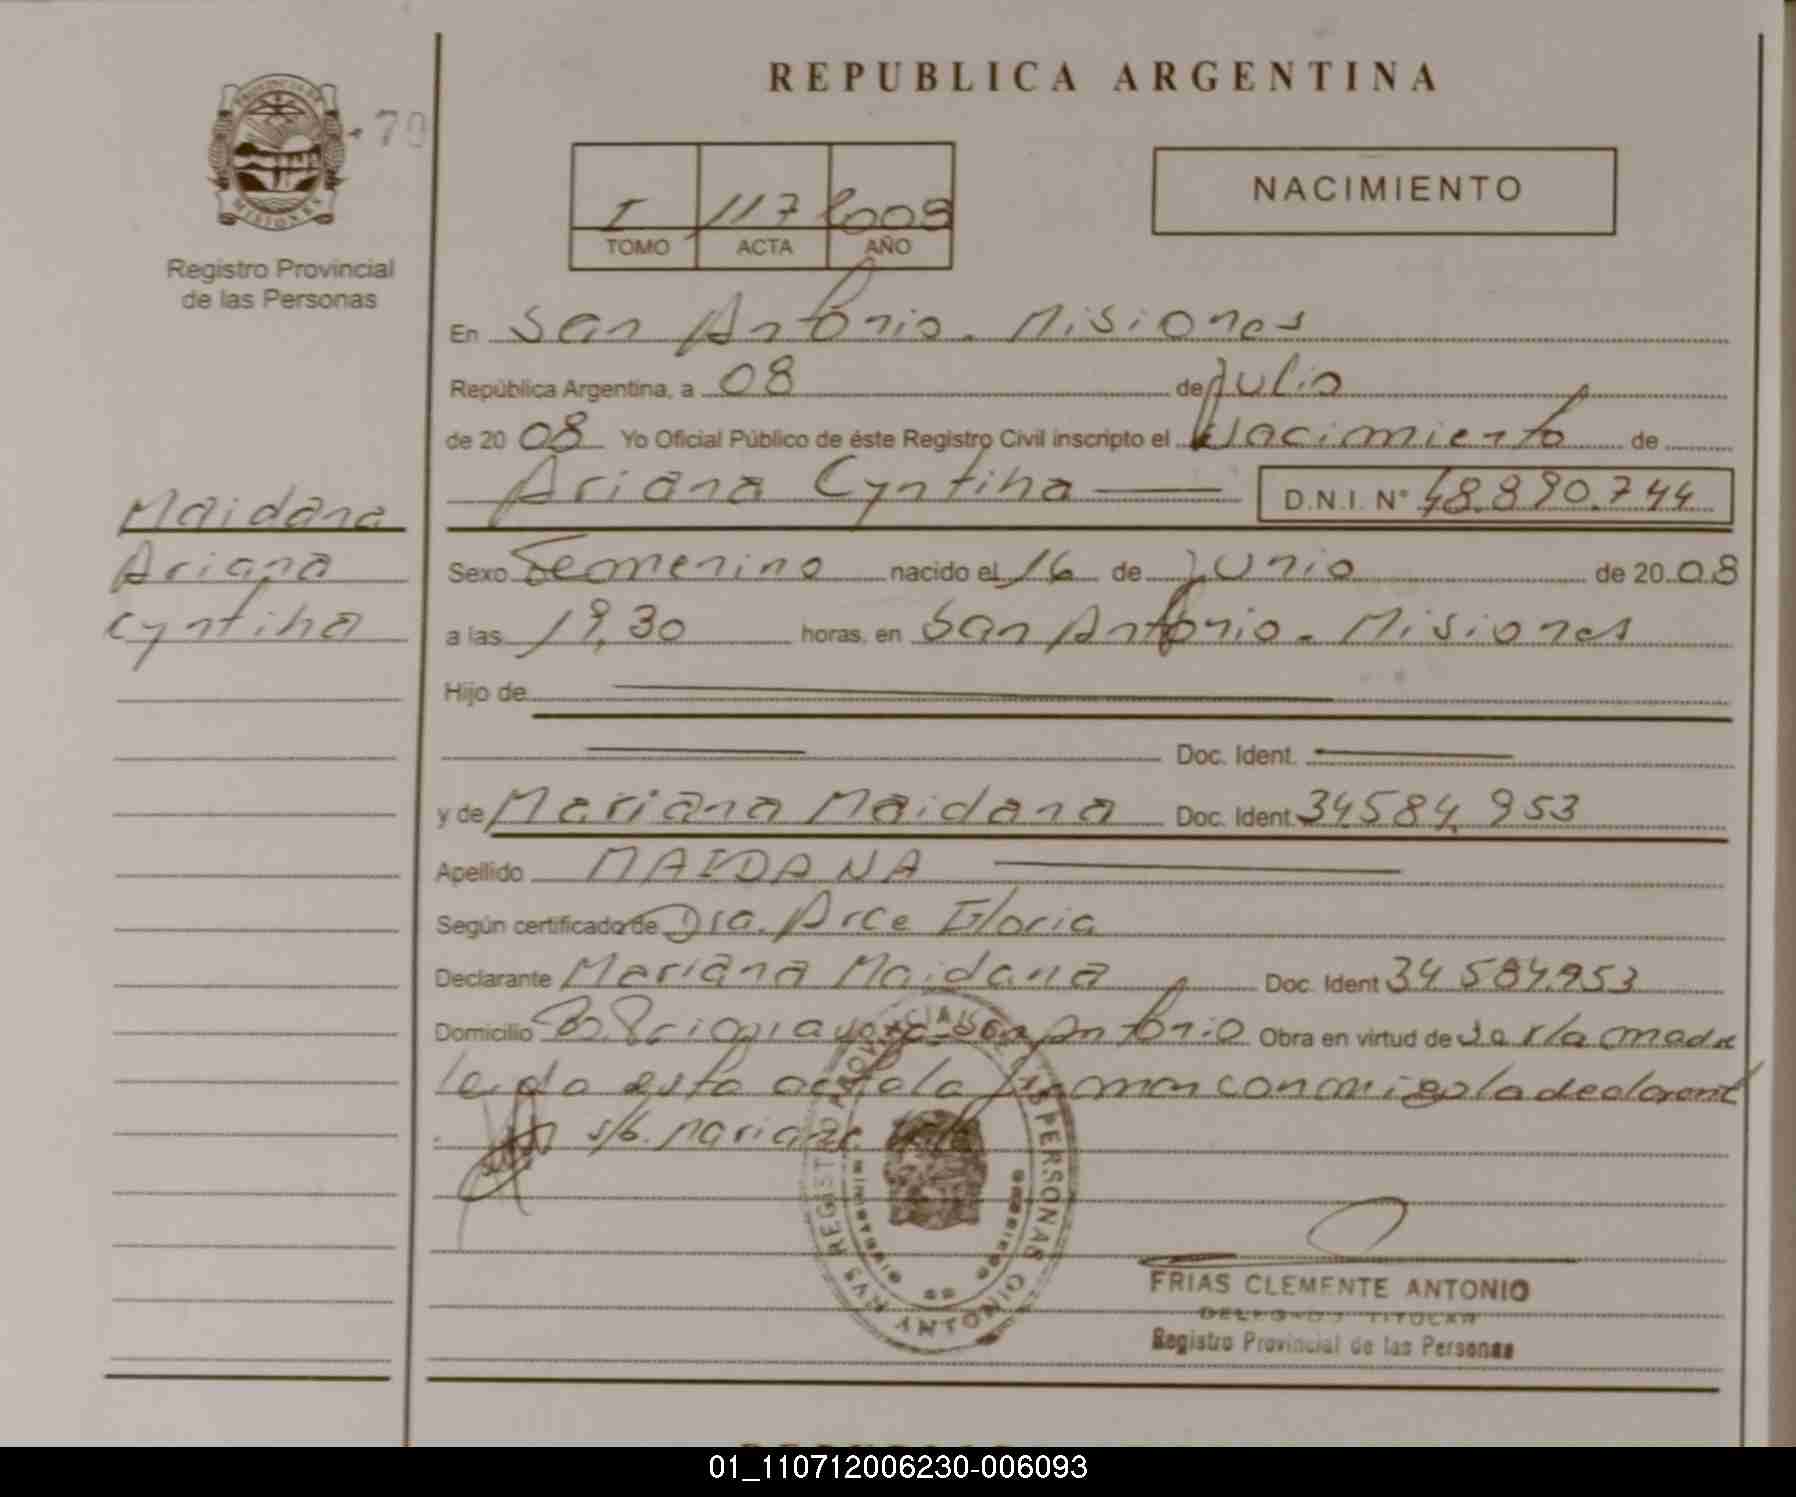 REPUBLICA ARGENTINA
PROVINCIA DE
MISIONES
70
Registro Provincial
de las Personas
I 117 2008
TOMO ACTA AÑO
NACIMIENTO
En San Antonio - Misiones
República Argentina, a 08 de Julio
de 2008 Yo Oficial Público de éste Registro Civil inscripto el Nacimiento de
Ariana Cyntiha D.N.I. N° 48.890.744
Maidana
Ariana
Cyntiha
Sexo Femenino nacido el 16 de Junio de 2008
a las 19,30 horas, en San Antonio - Misiones
Hijo de
Doc. Ident.
y de Mariana Maidana Doc. Ident. 34584.953
Apellido MAIDANA
Según certificado de Dra. Arce Gloria
Declarante Mariana Maidana Doc. Ident 34584.953
Domicilio San Antonio Obra en virtud de ser la madre
leida esta acta la firman conmigo la declarant
s/b. Mariana
REGISTRO PROVINCIAL DE LAS PERSONAS
FRIAS CLEMENTE ANTONIO
DELEGADO TITULAR
Registro Provincial de las Personas
01_110712006230-006093